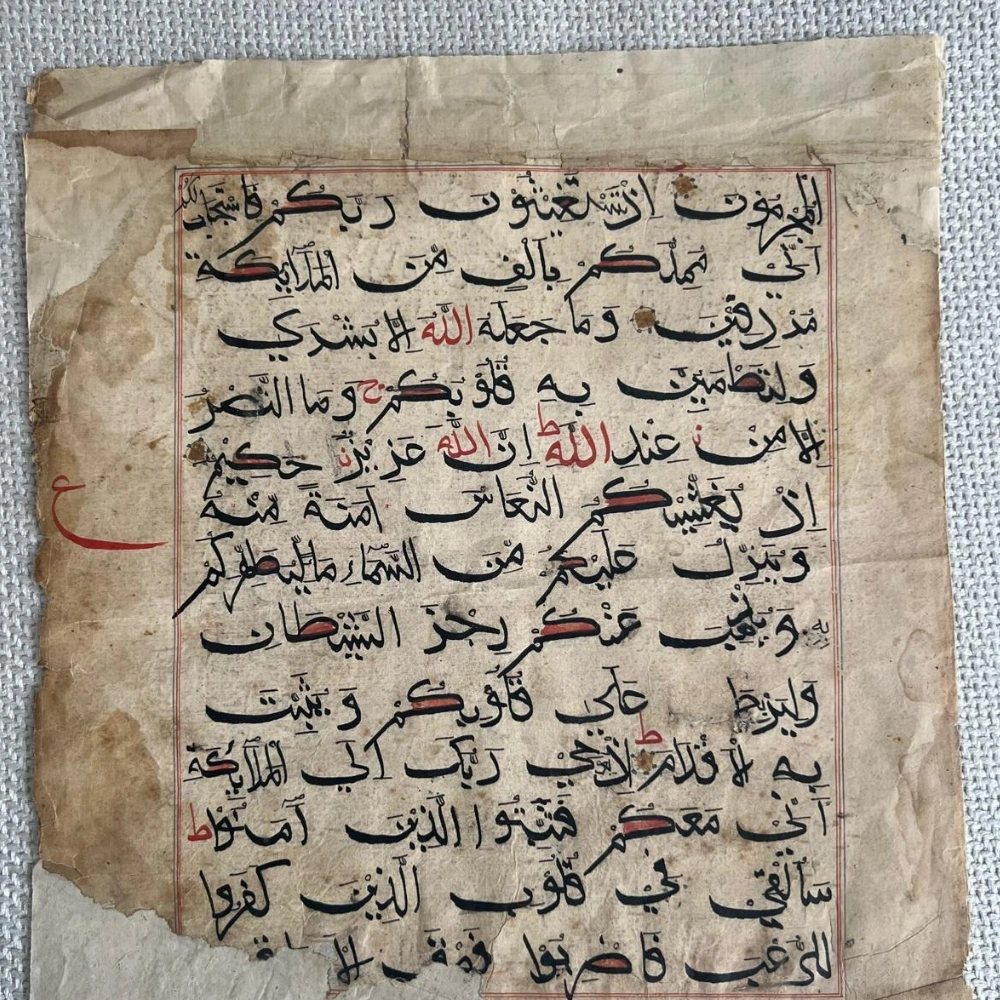 المجرمون اِذْ تَسْتَغِيثُونَ رَبَّكُمْ فَاسْتَجَابَ لَكُمْ
اَنِّي مُمِدُّكُمْ بِاَلْفٍ مِنَ الْمَلَائِكَةِ
مُرْدِفِينَ وَمَا جَعَلَهُ اللّٰهُ اِلَّا بُشْرَي
وَلِتَطْمَئِنَّ بِهِ قُلُوبُكُمْ ج وَمَا النَّصْرُ
اِلَّا مِنْ عِنْدِ اللّٰهِ ط اِنَّ اللّٰهَ عَزِيزٌ حَكِيمٌ
ع
اِذْ يُغَشِّيكُمُ النُّعَاسَ اَمَنَةً مِنْهُ
وَيُنَزِّلُ عَلَيْكُمْ مِنَ السَّمَاءِ مَاءً لِيُطَهِّرَكُمْ
بِهِ وَيُذْهِبَ عَنْكُمْ رِجْزَ الشَّيْطَانِ
وَلِيَرْبِطَ عَلَي قُلُوبِكُمْ وَيُثَبِّتَ
بِهِ الْاَقْدَامَ ط اِذْ يُوحِي رَبُّكَ اِلَي الْمَلَائِكَةِ
اَنِّي مَعَكُمْ فَثَبِّتُوا الَّذِينَ آمَنُوا ط
سَاُلْقِي فِي قُلُوبِ الَّذِينَ كَفَرُوا
الرُّعْبَ فَاضْرِبُوا فَوْقَ